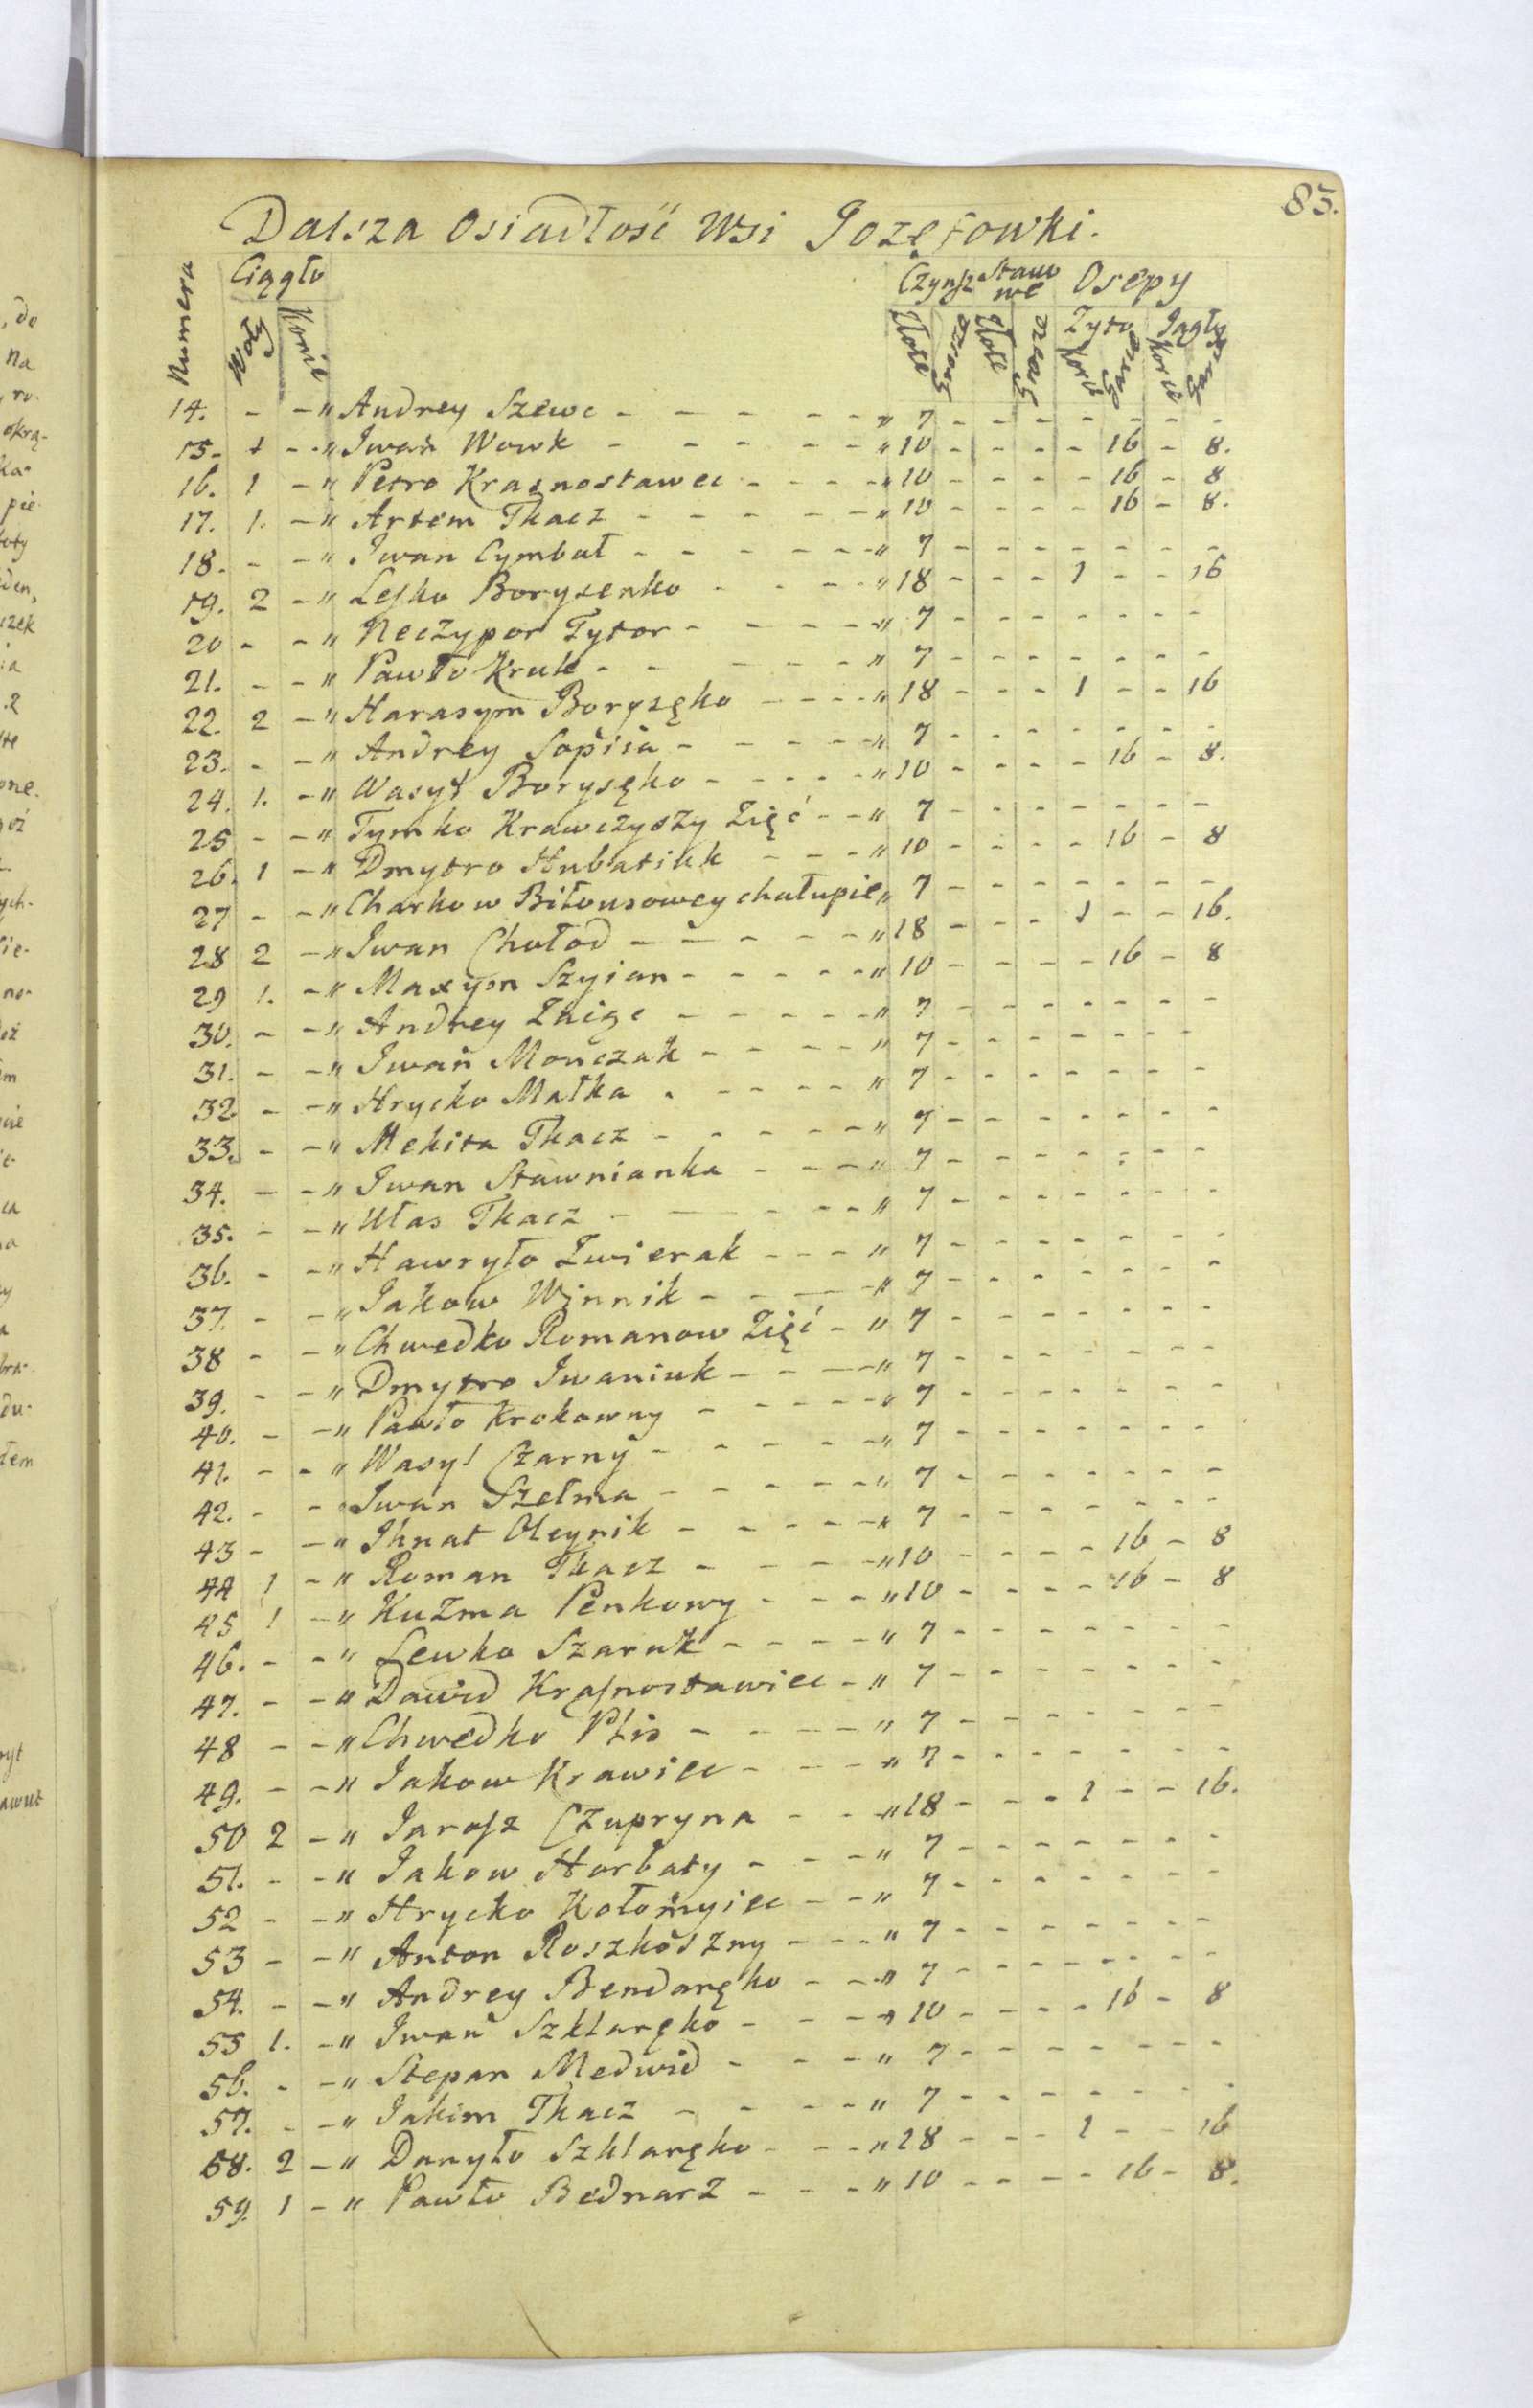 83.
Dalsza Osiadłość Wsi Jozefowki.
Numera Ciągło Czynsz Stawowe Osepy
Woły Konie Złote Grosze Złote Grosze Żyto Jagły
Korce Garce Korce Garce
14. - - " Andrey Szewc - - - - - " 7 - - - - - - -
15. 1 - " Jwan Wowk - - - - - " 10 - - - - 16 - 8.
16. 1 - " Petro Krasnostawec - - - - " 10 - - - - 16 - 8
17. 1. - " Artem Tkacz - - - - - " 10 - - - - 16 - 8.
18. - - " Jwan Cymbał - - - - - " 7 - - - - - - -
19. 2 - " Leſko Borysenko - - - - " 18 - - - 1 - - 16
20 - - " Neczypor Tytor - - - - " 7 - - - - - - -
21. - - " Pawło Kruk - - - - - " 7 - - - - - - -
22. 2 - " Harasym Borysęko - - - - " 18 - - - 1 - - 16
23. - - " Andrey Sopiia - - - - " 7 - - - - - - -
24. 1. - " Wasył Borysęko - - - - " 10 - - - - 16 - 8.
25 - - " Tymko Krawczyszy Zięć - - " 7 - - - - - - -
26. 1 - " Dmytro Hubatiuk - - - " 10 - - - - 16 - 8
27 - - " Charko w Biłousowey chałupie " 7 - - - - - - -
28 2 - " Jwan Chołod - - - - - " 18 - - - 1 - - 16.
29 1. - " Maxym Szyian - - - - - " 10 - - - - 16 - 8
30. - - " Andrey - - - - - " 7 - - - - - - -
31. - - " Jwan Monczak - - - - " 7 - - - - - - -
32. - - " Hrycko Małka - - - - - " 7 - - - - - - -
33. - - " Mekita Tkacz - - - - - " 7 - - - - - - -
34. - - " Jwan Stawnianka - - - " 7 - - - - - - -
35. - - " Ułas Tkacz - - - - - " 7 - - - - - - -
36. - - " Hawryło Zwierak - - - " 7 - - - - - - -
37. - - " Jakow Winnik - - - - " 7 - - - - - - -
38 - - " Chwedko Romanow Zięć - " 7 - - - - - - -
39. - - " Dmytro Jwaniuk - - - - " 7 - - - - - - -
40. - - " Pawło Krokowny - - - - " 7 - - - - - - -
41. - - " Wasyl Czarny - - - - - " 7 - - - - - - -
42. - - " Jwan Szełma - - - - - " 7 - - - - - - -
43 - - " Jhnat Oleynik - - - - - " 7 - - - - - - -
44 1 - " Roman Tkacz - - - - - " 10 - - - - 16 - 8
45 1 - " Kuzma Penkowy - - - " 10 - - - - 16 - 8
46. - - " Lewko Szaruk - - - - " 7 - - - - - - -
47. - - " Dawid Kraſnostawiec - " 7 - - - - - - -
48 - - " Chwedko Plis - - - - " 7 - - - - - - -
49. - - " Jakow Krawiec - - - " 7 - - - - - - -
50 2 - " Jaroſz Czupryna - - " 18 - - - 1 - - 16.
51. - - " Jakow Horbaty - - - " 7 - - - - - - -
52 - - " Hrycko Kołomyiec - - " 7 - - - - - - -
53 - - " Anton Roszkoszny - - - " 7 - - - - - - -
54. - - " Andrey Bendaręko - - " 7 - - - - - - -
55 1. - " Jwan Szklaręko - - - " 10 - - - - 16 - 8
56. - - " Stepan Medwid - - - " 7 - - - - - - -
57. - - " Jakim Tkacz - - - - " 7 - - - - - - -
58. 2 - " Danyło Szklaręko - - - " 18 - - - 1 - - 16
59. 1 - " Pawło Bednarz - - - " 10 - - - - 16 - 8.